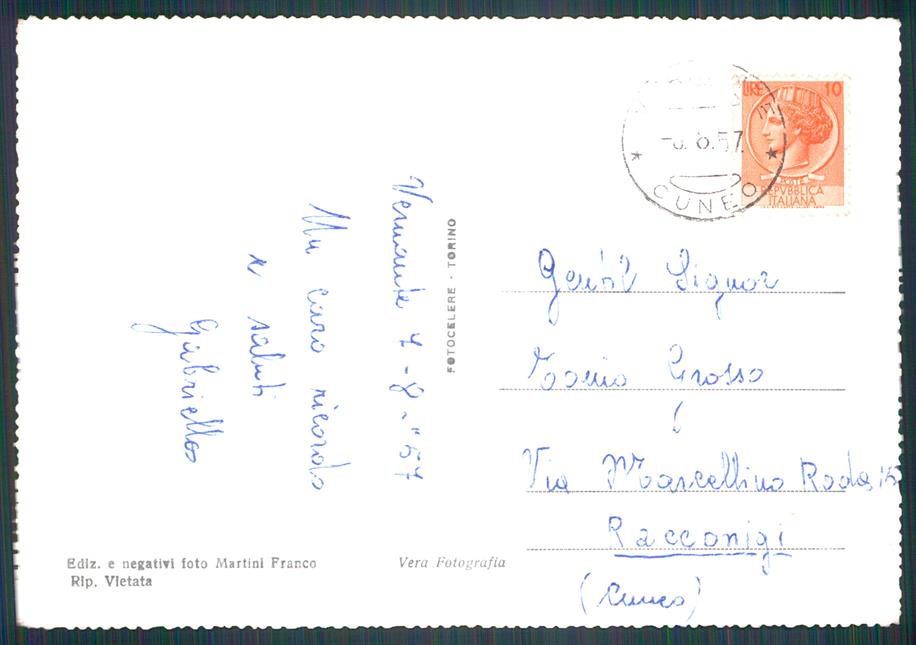 Vernante 7-8-"57
Un caro ricordo
e saluti
Gabriella
FOTOCELERE - TORINO
Ediz. e negativi foto Martini Franco
Rip. Vietata
Vera Fotografia
8.57
CUNEO
LIRE 10
POSTE
REPVBBLICA
ITALIANA
Gentil Signor
Grosso
Via Marcellino Roda 15
Racconigi
(Cuneo)